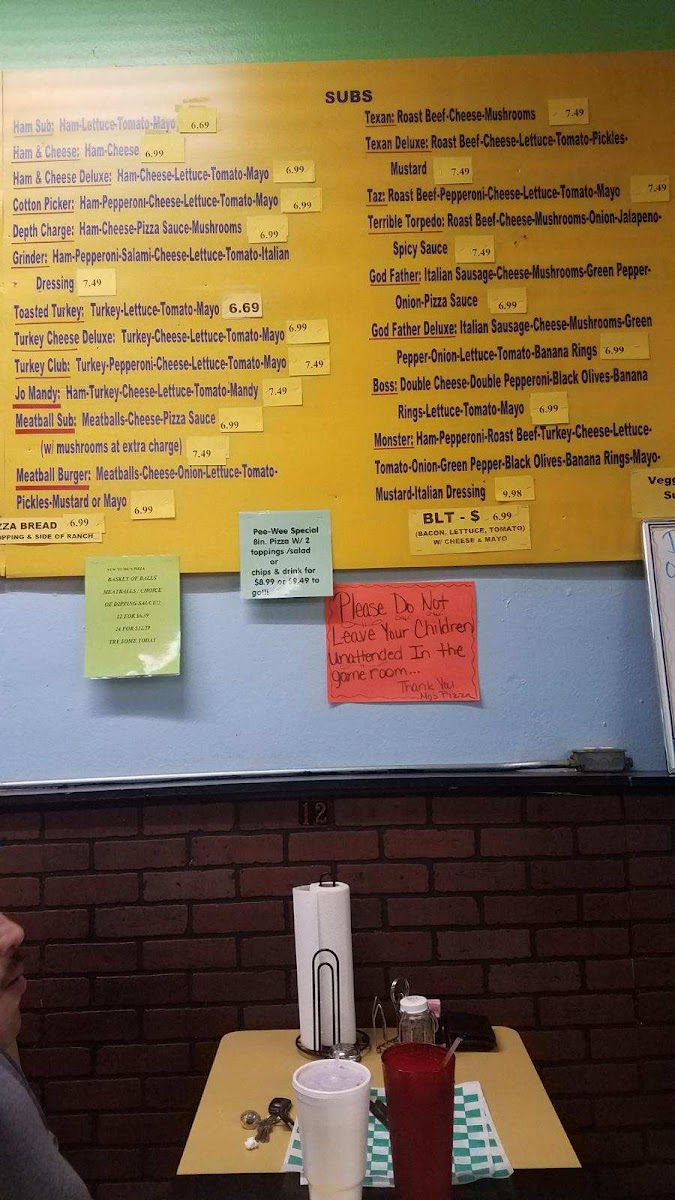 SUBS
Ham Sub: Ham-Lettuce-Tomato-Mayo 6.69
Ham & Cheese: Ham-Cheese 6.99
Ham & Cheese Deluxe: Ham-Cheese-Lettuce-Tomato-Mayo 6.99
Cotton Picker: Ham-Pepperoni-Cheese-Lettuce-Tomato-Mayo 6.99
Depth Charge: Ham-Cheese-Pizza Sauce-Mushrooms 6.99
Grinder: Ham-Pepperoni-Salami-Cheese-Lettuce-Tomato-Italian
Dressing 7.49
Toasted Turkey: Turkey-Lettuce-Tomato-Mayo 6.69
Turkey Cheese Deluxe: Turkey-Cheese-Lettuce-Tomato-Mayo 6.99
Turkey Club: Turkey-Pepperoni-Cheese-Lettuce-Tomato-Mayo 7.49
Jo Mandy: Ham-Turkey-Cheese-Lettuce-Tomato-Mandy 7.49
Meatball Sub: Meatballs-Cheese-Pizza Sauce 6.99
(w/ mushrooms at extra charge) 7.49
Meatball Burger: Meatballs-Cheese-Onion-Lettuce-Tomato-
Pickles-Mustard or Mayo 6.99
ZZA BREAD 6.99
OPPING & SIDE OF RANCH
Texan: Roast Beef-Cheese-Mushrooms 7.49
Texan Deluxe: Roast Beef-Cheese-Lettuce-Tomato-Pickles-
Mustard 7.49
Taz: Roast Beef-Pepperoni-Cheese-Lettuce-Tomato-Mayo 7.49
Terrible Torpedo: Roast Beef-Cheese-Mushrooms-Onion-Jalapeno-
Spicy Sauce 7.49
God Father: Italian Sausage-Cheese-Mushrooms-Green Pepper-
Onion-Pizza Sauce 6.99
God Father Deluxe: Italian Sausage-Cheese-Mushrooms-Green
Pepper-Onion-Lettuce-Tomato-Banana Rings 6.99
Boss: Double Cheese-Double Pepperoni-Black Olives-Banana
Rings-Lettuce-Tomato-Mayo 6.99
Monster: Ham-Pepperoni-Roast Beef-Turkey-Cheese-Lettuce-
Tomato-Onion-Green Pepper-Black Olives-Banana Rings-Mayo-
Mustard-Italian Dressing 9.98
BLT - $ 6.99
(BACON, LETTUCE, TOMATO)
W/ CHEESE & MAYO
Vegg
Su
Pee-Wee Special
8in. Pizza W/ 2
toppings /salad
or
chips & drink for
$8.99 or $9.49 to
go!!!
BASKET OF BALLS
MEATBALLS! CHOICE
OF DIPPING SAUCE!!
12 FOR $6.99
24 FOR
TRY SOME TODAY
Please Do Not
Leave Your Children
Unattended In the
game room...
Thank You
Pizza
12